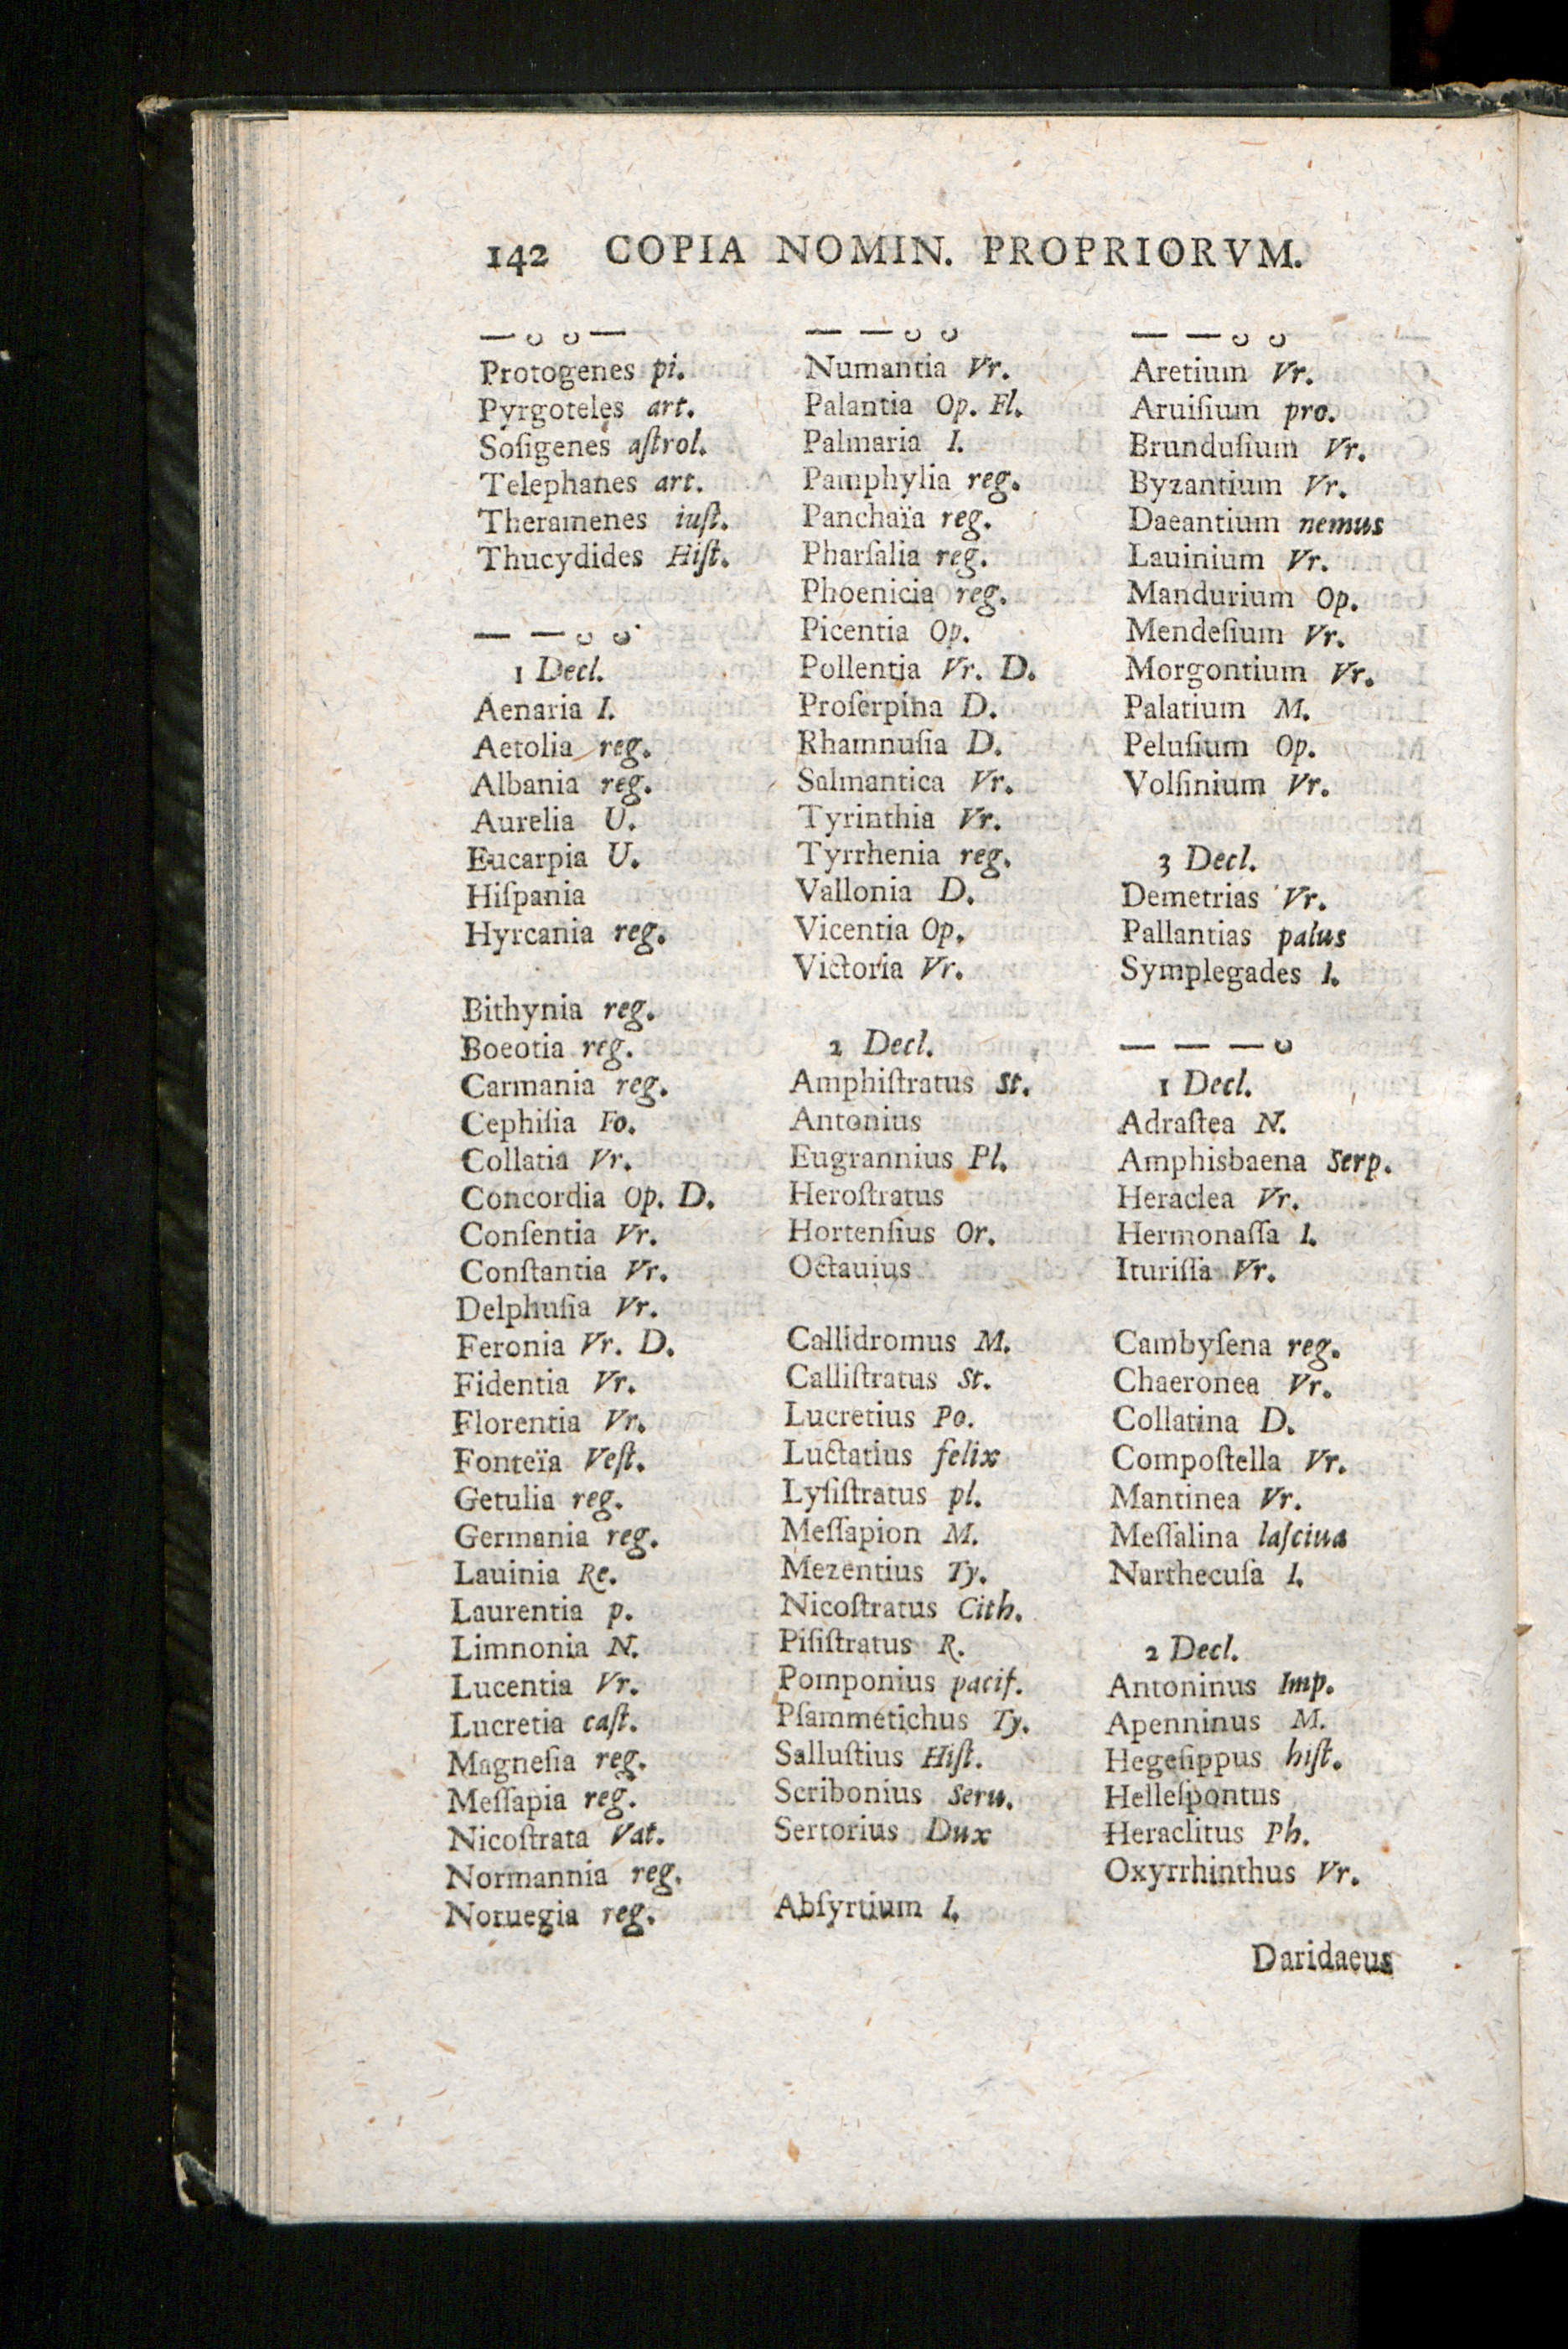 142 COPIA NOMIN. PROPRIORVM.
— ᴗ ᴗ —
Protogenes pi.
Pyrgoteles art.
Soſigenes aſtrol.
Telephanes art.
Theramenes iuſt.
Thucydides Hiſt.
— — ᴗ ᴗ
1 Decl.
Aenaria I.
Aetolia reg.
Albania reg.
Aurelia U.
Eucarpia U.
Hiſpania
Hyrcania reg.
Bithynia reg.
Boeotia reg.
Carmania reg.
Cephiſia Fo.
Collatia Vr.
Concordia Op. D.
Conſentia Vr.
Conſtantia Vr.
Delphuſia Vr.
Feronia Vr. D.
Fidentia Vr.
Florentia Vr.
Fonteïa Veſt.
Getulia reg.
Germania reg.
Lauinia Re.
Laurentia p.
Limnonia N.
Lucentia Vr.
Lucretia caſt.
Magneſia reg.
Meſſapia reg.
Nicoſtrata Vat.
Normannia reg.
Noruegia reg.
— — ᴗ ᴗ
Numantia Vr.
Palantia Op. Fl.
Palmaria I.
Pamphylia reg.
Panchaïa reg.
Pharſalia reg.
Phoenicia reg.
Picentia Op.
Pollentia Vr. D.
Proſerpina D.
Rhamnuſia D.
Salmantica Vr.
Tyrinthia Vr.
Tyrrhenia reg.
Vallonia D.
Vicentia Op.
Victoria Vr.
2 Decl.
Amphiſtratus St.
Antonius
Eugrannius Pl.
Heroſtratus
Hortenſius Or.
Octauius
Callidromus M.
Calliſtratus St.
Lucretius Po.
Luctatius felix
Lyſiſtratus pl.
Meſſapion M.
Mezentius Ty.
Nicoſtratus Cith.
Piſiſtratus R.
Pomponius pacif.
Pſammetichus Ty.
Salluſtius Hiſt.
Scribonius Seru.
Sertorius Dux
Abſyrtium I.
— — ᴗ ᴗ
Aretium Vr.
Aruiſium pro.
Brunduſium Vr.
Byzantium Vr.
Daeantium nemus
Lauinium Vr.
Mandurium Op.
Mendeſium Vr.
Morgontium Vr.
Palatium M.
Peluſium Op.
Volſinium Vr.
3 Decl.
Demetrias Vr.
Pallantias palus
Symplegades I.
— — — ᴗ
1 Decl.
Adraſtea N.
Amphisbaena Serp.
Heraclea Vr.
Hermonaſſa I.
Ituriſſa Vr.
Cambyſena reg.
Chaeronea Vr.
Collatina D.
Compoſtella Vr.
Mantinea Vr.
Meſſalina laſciua
Narthecuſa I.
2 Decl.
Antoninus Imp.
Apenninus M.
Hegeſippus hiſt.
Helleſpontus
Heraclitus Ph.
Oxyrrhinthus Vr.
Daridaeus